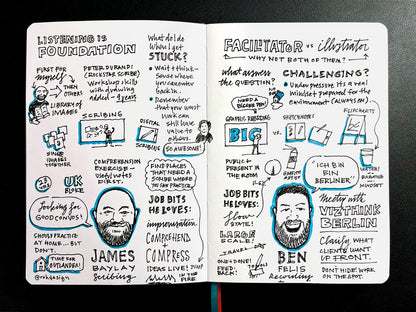 LISTENING IS
FOUNDATION
FIRST FOR
myself
THEN
OTHERS
LIBRARY OF
IMAGES
PETER DURAND!
(ROCKSTAR SCRIBE)
Workshop skills
with drawing
added - 9 years
What do I do
when I get
STUCK?
Wait + think -
sense where
you can enter
back in.
Remember
that your
work can
still have
value to
others.
SO AWESOME!
SCRIBING
DIGITAL
SCRIBING
SOUND
IMAGES
TOGETHER
COMPREHENSION
EXERCISE -
FIRST.
FIND PLACES
THAT NEED A
SCRIBE WHERE
YOU CAN PRACTICE.
UK
Looking for
GOOD CONVOS!
SHOULD PRACTICE
AT HOME... BUT
DON'T.
TIME FOR
OUTLANDER!
@rohdesign
JAMES
BAYLAY
Scribing
JOB BITS
HE LOVES:
improvisation
COMPREHEND
COMPRESS
IDEAS LIVE!
JUMP
IN THE
FIRE
FACILITATOR vs illustrator
WHY NOT BOTH OF THEM?
what answers
THE QUESTION?
NEED A
BIGGER PEN!
CHALLENGING?
Under pressure it's a real
mindset prepared for the
environment (always on).
GRAPHIC RECORDING
VS.
SKETCHNOTES
FLIPCHARTS
BIG
PUBLIC +
PRESENT IN
THE ROOM
ICH BIN
EIN BERLINER!
WATER!
HYDRATED
MINDSET
JOB BITS
HE LOVES:
Slow
START!
LARGE
SCALE!
TRAVEL
ONE + DONE!
FEED-
BACK!
BEN
FELIS
Recording
Meetup with
VIZTHINK
BERLIN
Clarify WHAT
CLIENTS WANT
UP FRONT.
DON'T HIDE WORK
ON THE SPOT.